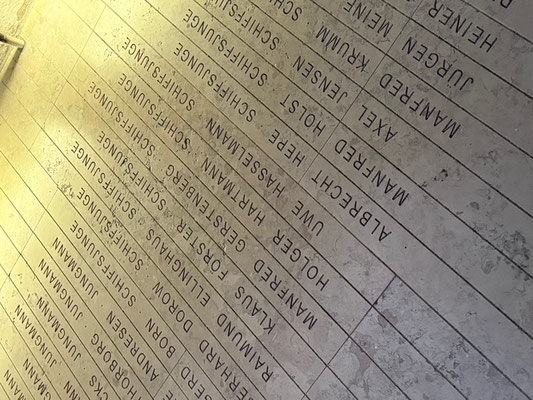 JUNGMANN
JUNGMANN
JUNGMANN
THORBORG JUNGMANN
ANDRESEN SCHIFFSJUNGE
GERD BORN SCHIFFSJUNGE
EBERHARD DOROW SCHIFFSJUNGE
RAIMUND ELLINGHAUS SCHIFFSJUNGE
KLAUS FORSTER SCHIFFSJUNGE
MANFRED GERSTENBERG SCHIFFSJUNGE
HOLGER HARTMANN SCHIFFSJUNGE
UWE HASSELMANN SCHIFFSJUNGE
ALBRECHT HEPE SCHIFFSJUNGE
MANFRED HOLST SCHIFFSJUNGE
AXEL JENSEN SCHIFFSJUNGE
MANFRED KRUMM
JÜRGEN MEINE
HEINER